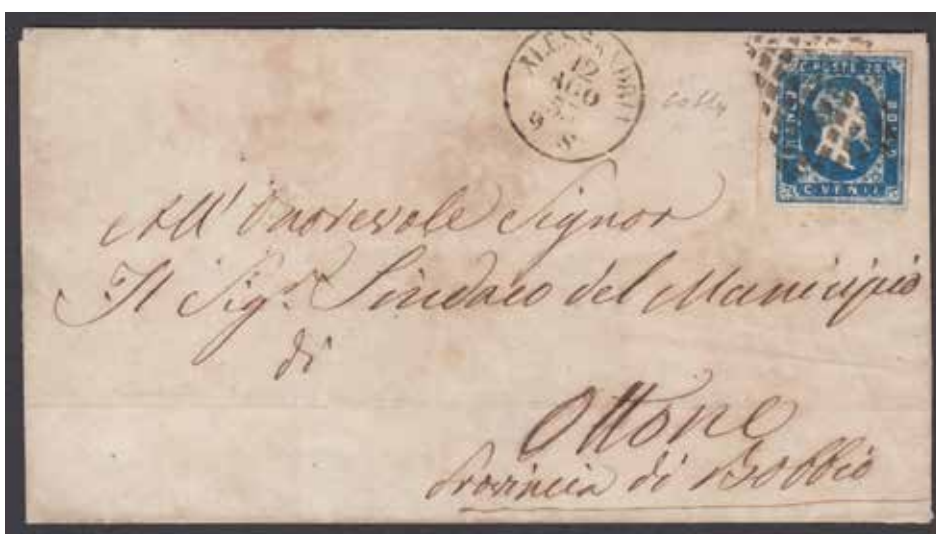 ALESSANDRIA
12
AGO
9 S
C.POSTE 20
FRANCO
BOLLO
C.VENTI
All' Onorevole Signor
Il Sigr. Sindaco del Municipio
di
Ottone
Provincia di Bobbio